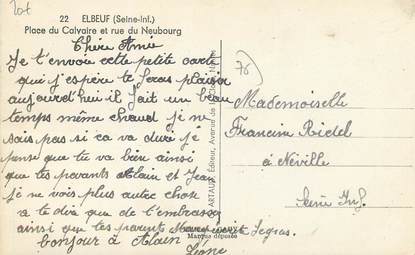 22 ELBEUF (Seine-Inf.)
Place du Calvaire et rue du Neubourg
Chère Amie
Je t'envoie cette petite carte
qui j'espère te feras plaisir
aujourd'hui il fait un beau
temps même chaud je ne
sais pas si ca va duré je
pense que tu va bien ainsi
que tes parents Alain et Jean
je ne vois plus autre chose
a te dire que de t'embrasser
ainsi que tes parents
bonjour à Alain
76
Mademoiselle
Francine Riedel
à Néville
Seine Inf.
ARTAUD, Éditeur, Avenue de la Close
Marque déposée